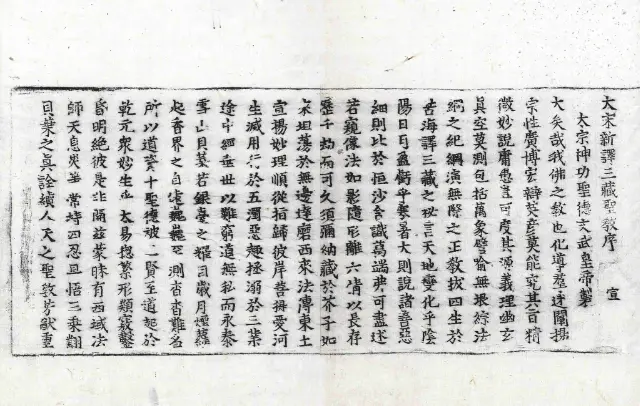 大宋新譯三藏聖教序　宣
太宗神功聖德文武皇帝製
大矣哉我佛之教也化導羣迷闡揚
宗性廣博宏辯英彥莫能究其旨精
微妙說庸愚豈可度其源義理幽玄
真空莫測包括萬象譬喻無垠綜法
網之紀綱演無際之正教拔四生於
苦海譯三藏之秘言天地變化乎陰
陽日月盈虧乎寒暑大則說諸善惡
細則比於恒沙含識萬端弗可盡述
若窺像法如影隨形離六情以長存
歷千劫而可久須彌納藏於芥子如
來坦蕩於無邊達磨西來法傳東土
宣揚妙理順從指歸彼岸菩提愛河
生滅用行於五濁惡趣拯溺於三業
途中經垂世以難窮道無私而永泰
雪山貝葉若銀臺之耀目歲月煙蘿
起香界之自遠巍巍罕測杳杳難名
所以道資十聖德被二賢至道起於
乾元眾妙生乎太易總繁形類竅鑿
昏明絕彼是非開茲蒙昧有西域法
師天息災等常持四忍早悟三乘翻
貝葉之真詮續人天之聖教芳猷重